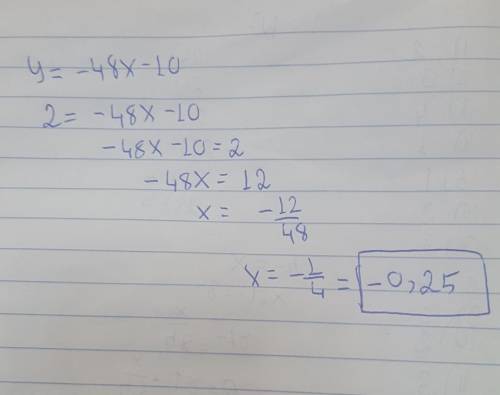 y = -48x -10
2 = -48x -10
-48x -10 = 2
-48x = 12
x = -12/48
x = -1/4 = -0,25